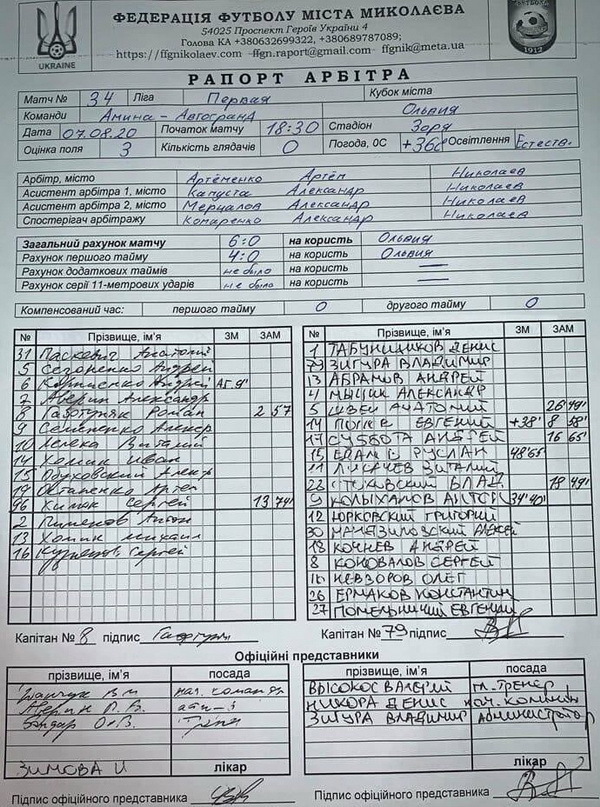 UKRAINE
ФЕДЕРАЦІЯ ФУТБОЛУ МІСТА МИКОЛАЄВА
54025 Проспект Героїв України 4
Голова КА +380632699322, +380689787089;
https://ffgnikolaev.com -ffgn.raport@gmail.com- ffgnik@meta.ua
1912
РАПОРТ АРБІТРА
Матч № 34 Ліга Первая Кубок міста
Команди Амина - Автогранд Ольвия
Дата 07.08.20 Початок матчу 18:30 Стадіон Заря
Оцінка поля 3 Кількість глядачів 0 Погода, 0С Освітлення Естеств.
Арбітр, місто Артёменко Артём Николаев
Асистент арбітра 1, місто Капуста Александр Николаев
Асистент арбітра 2, місто Мерцалов Александр Николаев
Спостерігач арбітражу Комаренко Александр Николаев
Загальний рахунок матчу 6:0 на користь Ольвия
Рахунок першого тайму 4:0 на користь Ольвия
Рахунок додаткових таймів не было на користь —
Рахунок серії 11-метрових ударів не было на користь —
Компенсований час: першого тайму 0 другого тайму 0
№ Прізвище, ім'я ЗМ ЗАМ
31 Анатолий
5 Андрей
6 Андрей
7 Аверин Александр
8 Роман 2 57
9
10 Лелека Виталий
14 Хомик Иван
15
19 Артем
96 Сергей 13 74'
2 Антон
13 Хомик Михаил
16 Кузнецов Сергей
№ Прізвище, ім'я ЗМ ЗАМ
1 ТАБУНЩИКОВ ДЕНИС
79 ЗИГУРА ВЛАДИМИР
13 АБРАМОВ АНДРЕЙ
4 МЫЦИК АЛЕКСАНДР
5 АНАТОЛИЙ 26 49'
14 ЕВГЕНИЙ +38' 8 58'
17 СУББОТА АНДРЕЙ 16 65'
15 РУСЛАН 48'65'
11 ЛИХАЧЕВ ВИТАЛИЙ
22 ВЛАД 18 49'
9 КОЛЫХАЛОВ 34'40'
12 ЮРКОВСКИЙ ГРИГОРИЙ
30 АЛЕКСЕЙ
18 КОЧНЕВ АНДРЕЙ
8 КОНОВАЛОВ СЕРГЕЙ
16 НЕВЗОРОВ ОЛЕГ
26 ЕРМАКОВ КОНСТАНТИН
27 ПОМЕЛЬНИЦКИЙ ЕВГЕНИЙ
Капітан № 8 підпис
Капітан № 79 підпис
Офіційні представники
прізвище, ім'я посада
В.М. нач. команды
Аверин
Бондар О.В.
ЗИМОВА И лікар
прізвище, ім'я посада
ВЫСОКОС ВАЛЕРИЙ гл. ТРЕНЕР
НИКОРА ДЕНИС нач. команды
ЗИГУРА ВЛАДИМИР АДМИНИСТРАТОР
лікар
Підпис офіційного представника
Підпис офіційного представника